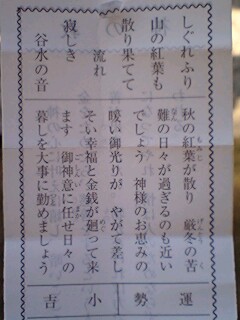 しぐれふり
山の紅葉も
散り果てて
流れ
寂しき
谷水の音
秋の紅葉が散り 厳冬の苦
もみじ
げんとう
く
難の日々が過ぎるのも近い
でしょう 神様のお恵みの
暖い御光りが やがて差し
そい幸福と金銭が廻って来
めぐ
ます 御神意に任せ日々の
まか
暮しを大事に勤めましょう
運勢 小吉